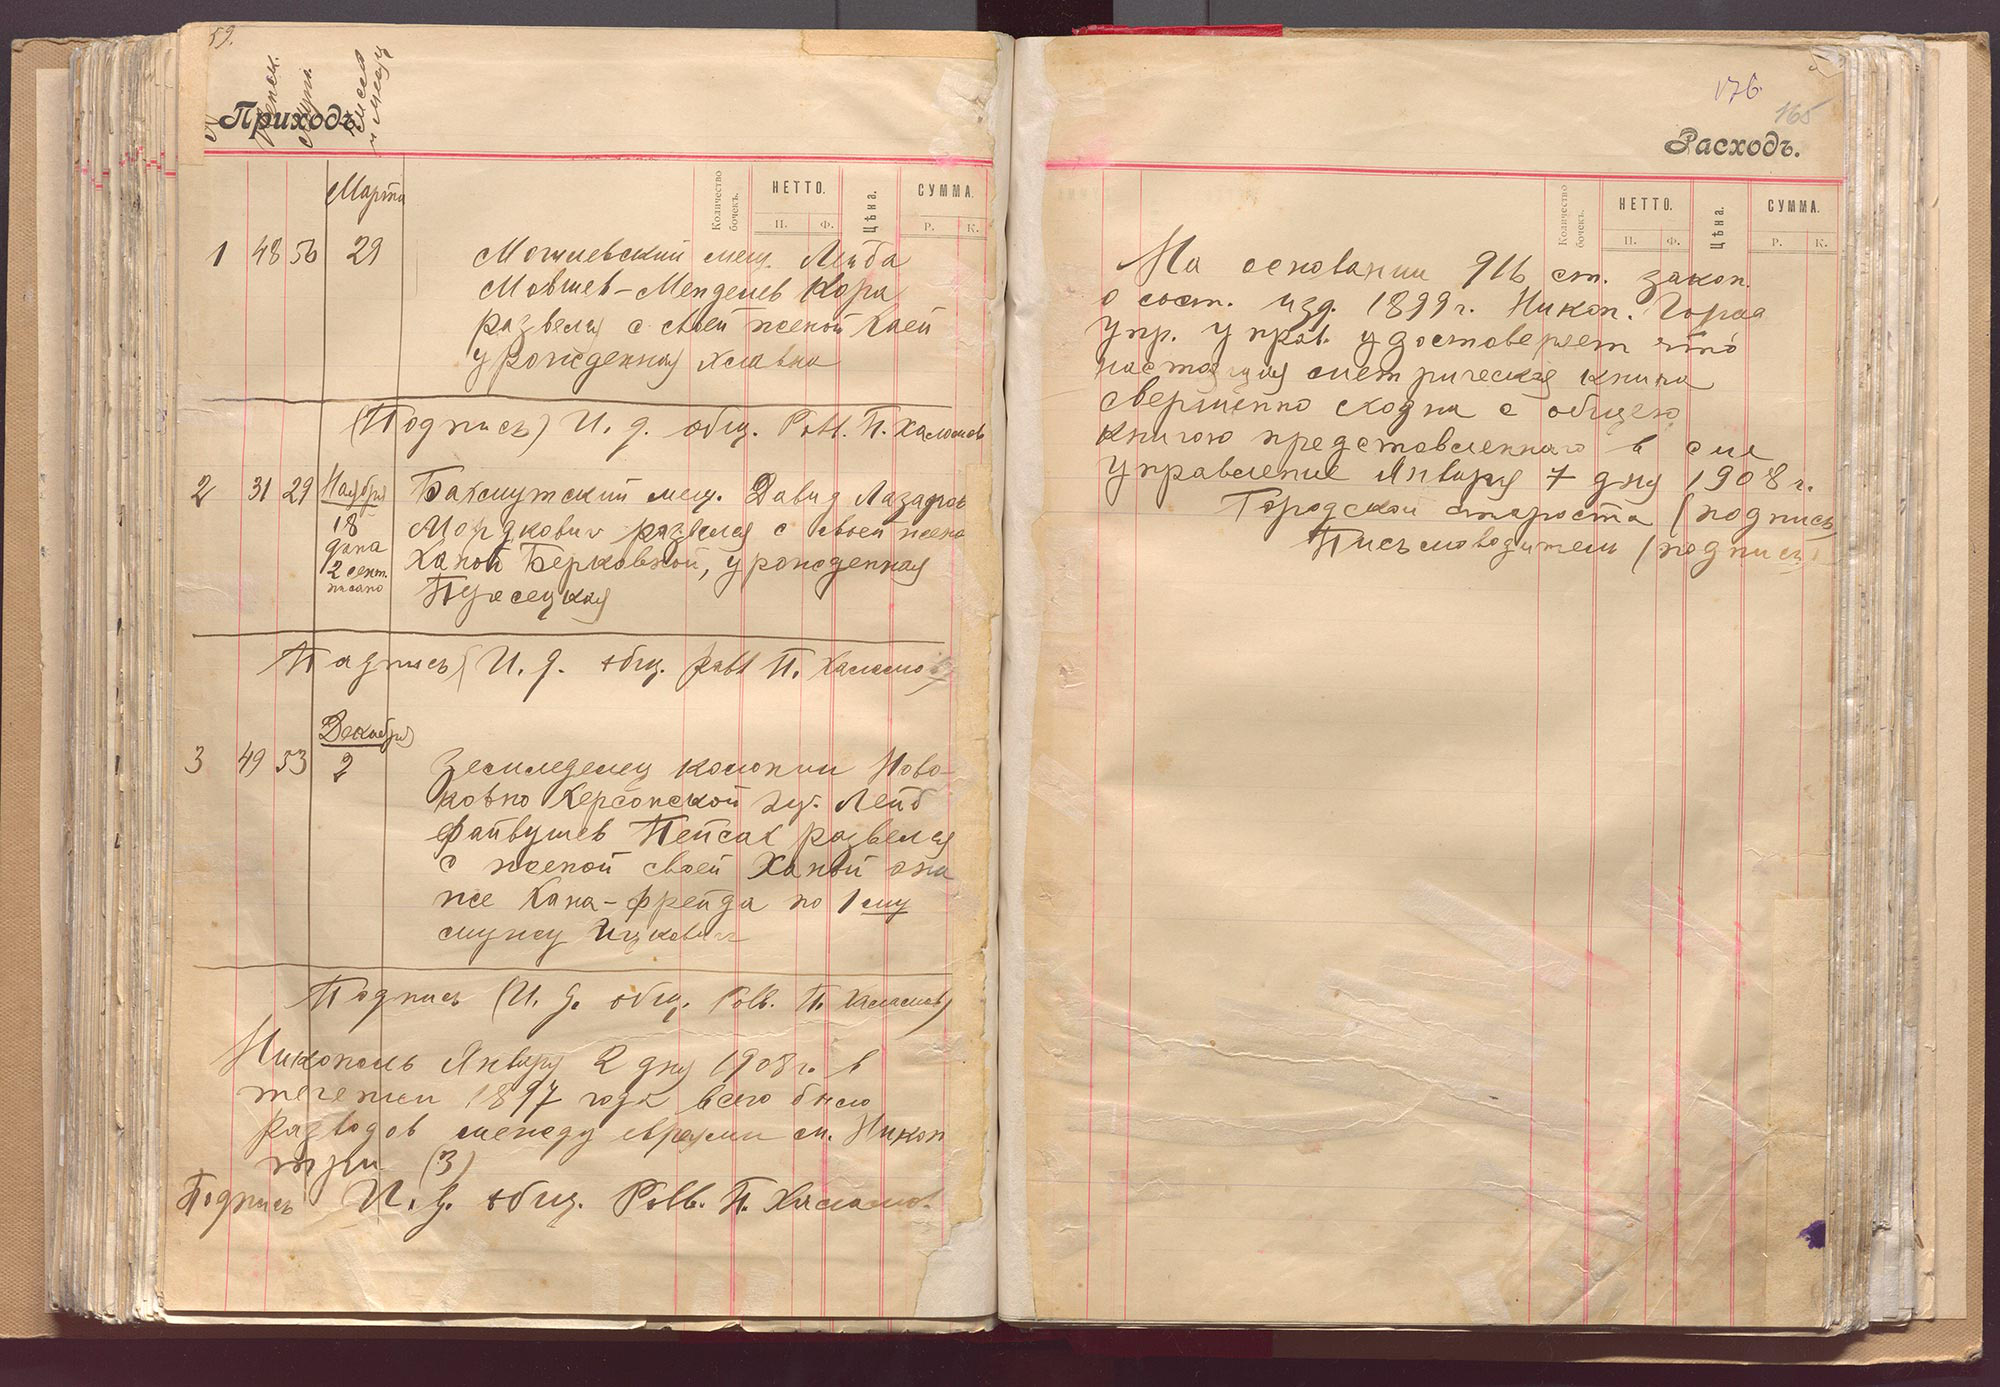 59.
Приходъ
Марта
Количество бочекъ.
НЕТТО.
П. Ф.
Цѣна.
СУММА.
Р. К.
1 48 56 29 Могилевский мещ. Лейба
Мовшев-Менделев Кора
развелся с своей женой Хаей
урожденная
(Подпись) И. д. общ. Равв. П. Халамов
2 31 29 Ноября Бахмутский мещ. Давид Лазаров
18 Мордкович развелся с своей жено
дана Ханой Берковной, урожденная
2 сект.
писано
(Подпись) И. д. общ. равв П. Халамо
Декабря
3 49 53 2 Земледелец колонии Ново-
ковно Херсонской гу. Лейб
Файвушев Пейсах развелся
с женой своей Ханой она
же Хана-Фрейда по 1му
мужу Ицкович
Подпись (И. д. общ. Равв. П. Халамов)
Никополь Января 2 дня 1908 г. в
течении 1897 года всего было
разводов между евреями м. Никоп
три (3)
Подпись И. д. общ. Равв. П. Халамов.
176.
165
Расходъ.
Количество бочекъ.
НЕТТО.
П. Ф.
Цѣна.
СУММА.
Р. К.
На основании 916 ст. закон.
о сост. изд. 1899 г. Никоп. Город
Упр. удостоверяет что
настоящая метрическая книга
свершенно сходна с общею
книгою представленнаго в сие
управление Января 7 дня 1908 г.
Городской староста (подпись
Письмоводитель (подпись)